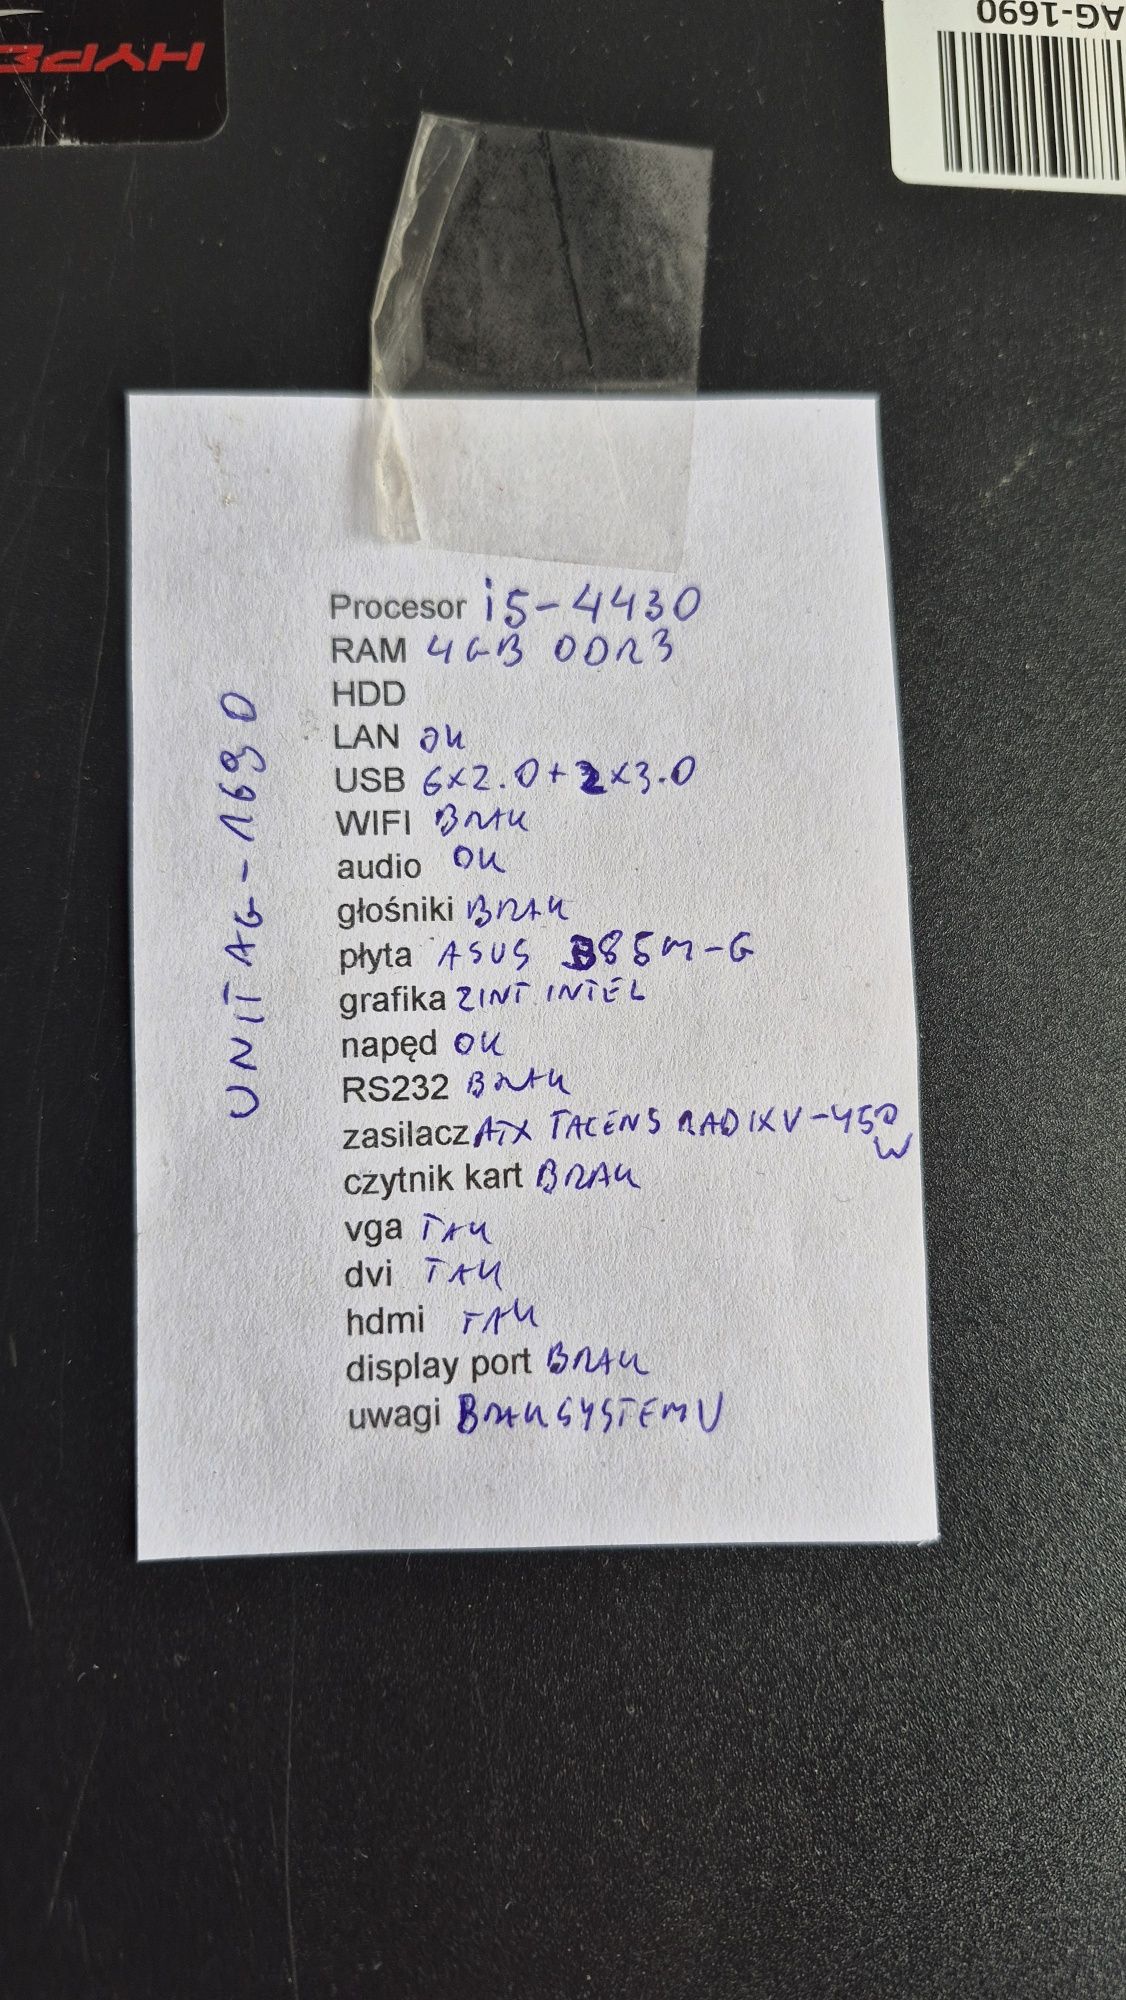 AG-1690
HYPE
UNITAG-1690
Procesor i5-4430
RAM 4GB DDR3
HDD
LAN OK
USB 6x2.0+2x3.0
WIFI BRAK
audio OK
głośniki BRAK
płyta ASUS B85M-G
grafika ZINT. INTEL
napęd OK
RS232 BRAK
zasilacz ATX TACENS RADIX V-450W
czytnik kart BRAK
vga TAK
dvi TAK
hdmi TAK
display port BRAK
uwagi BRAK SYSTEMU